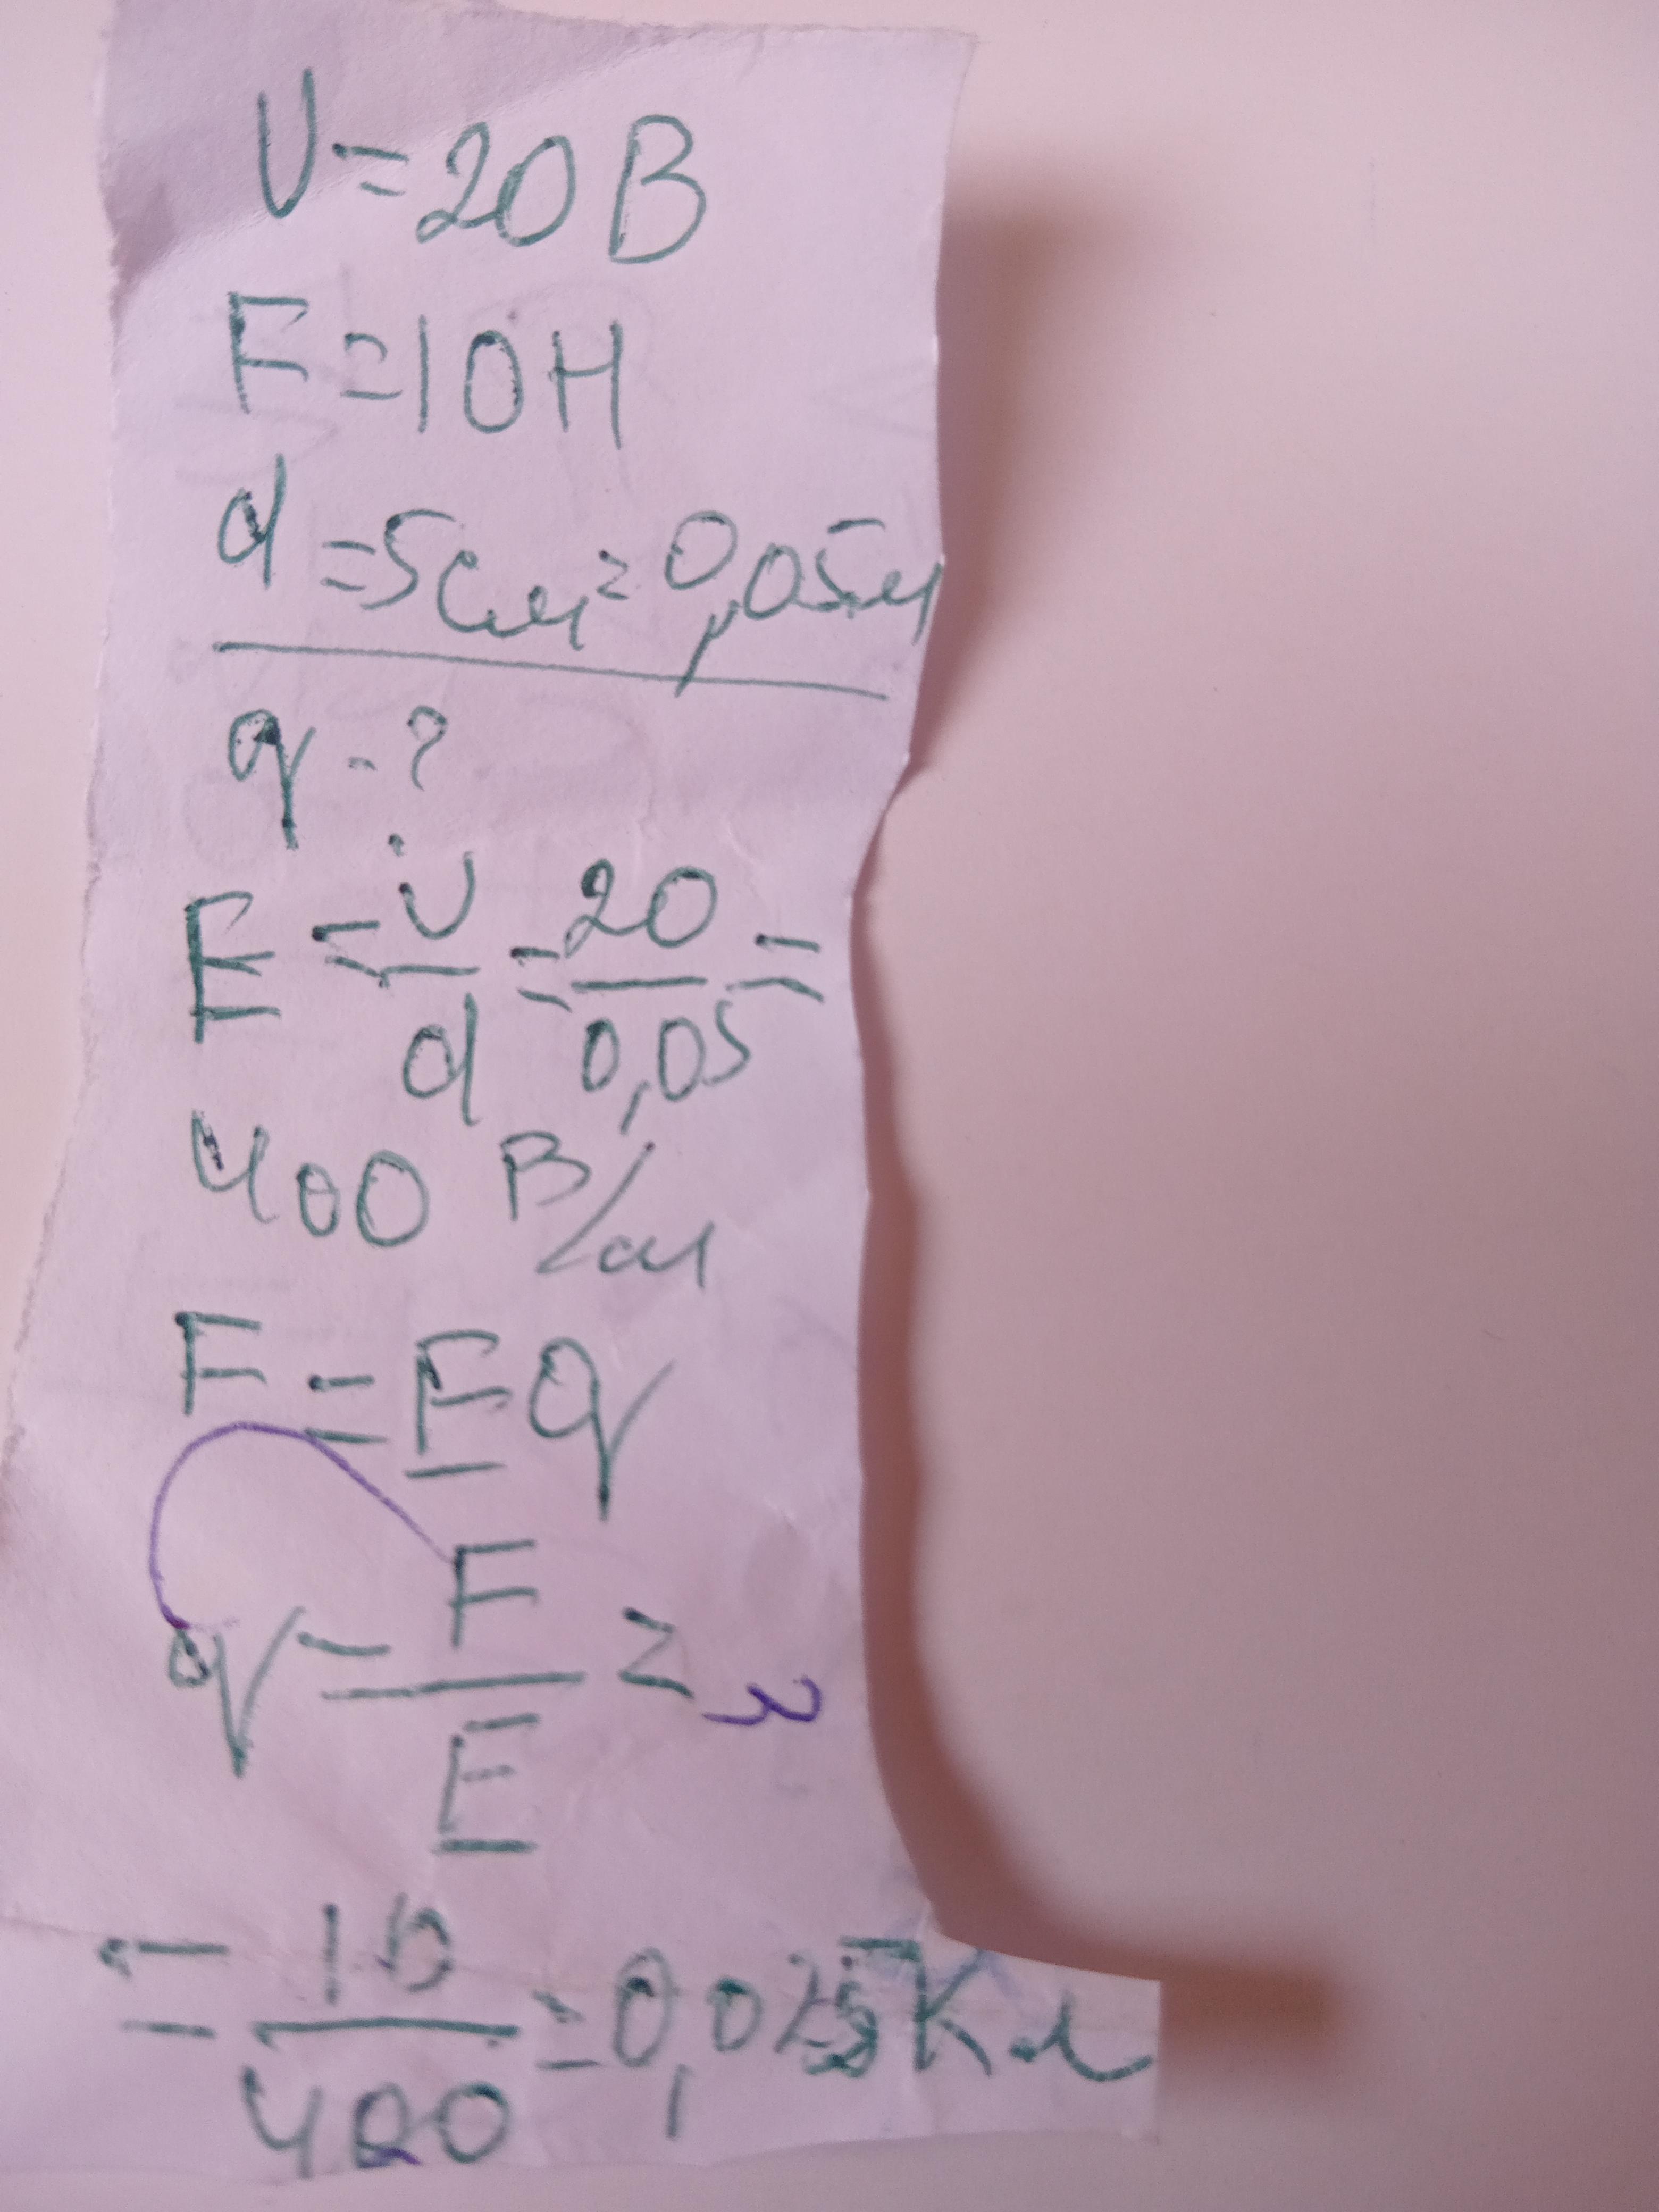 U=20В
F=10Н
d=5см=0,05м
q-?
E=U/d=20/0,05=
400 В/м
F=Eq
q=F/E=
=10/400=0,025Кл